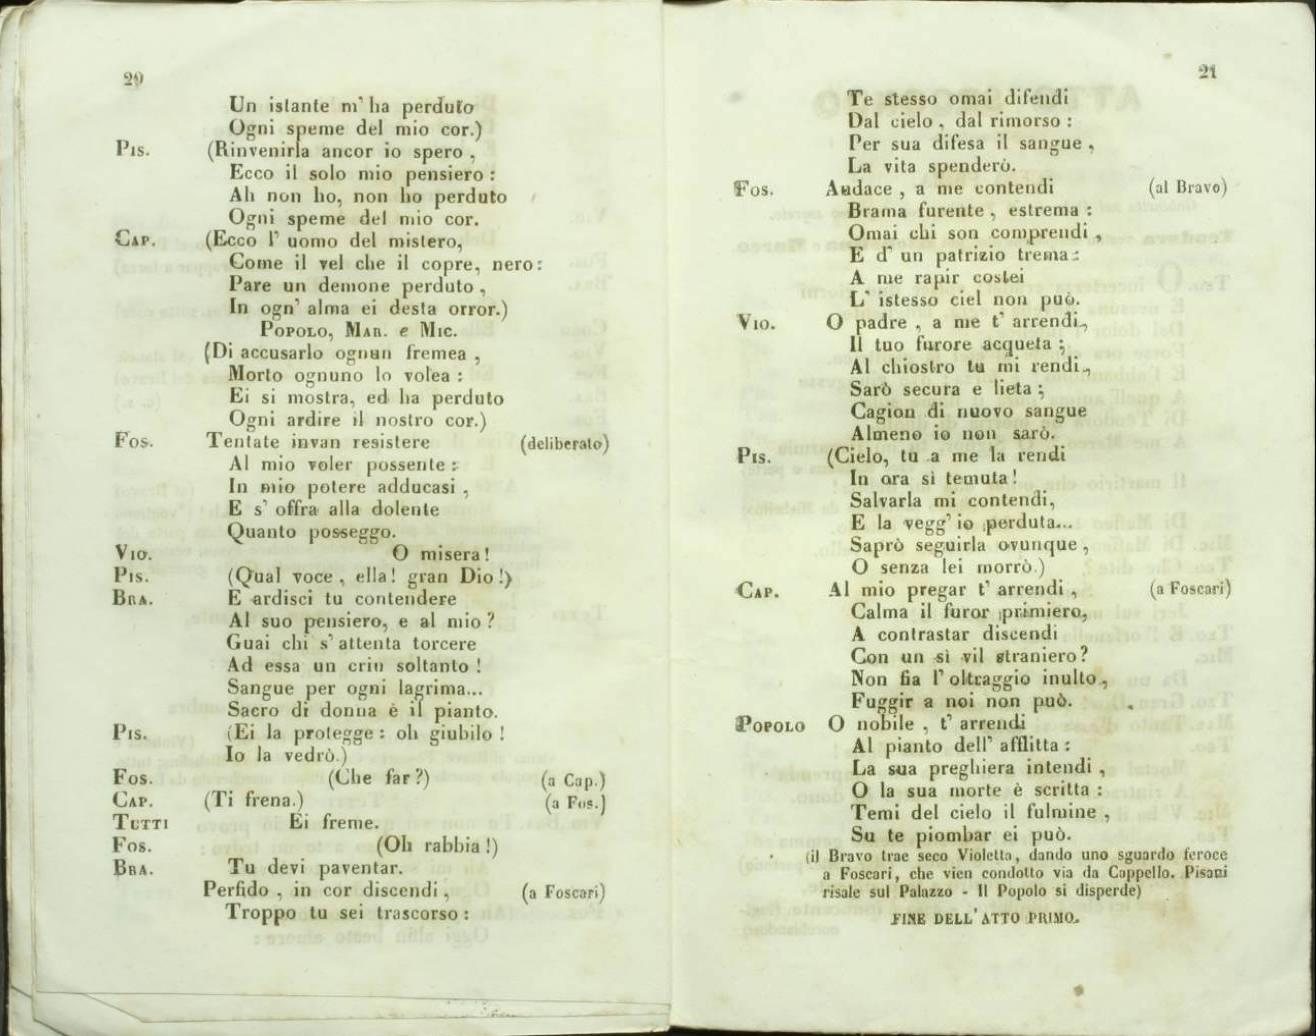 20
Un istante m' ha perduto
Ogni speme del mio cor.)
PIS. (Rinvenirla ancor io spero ,
Ecco il solo mio pensiero :
Ah non ho, non ho perduto
Ogni speme del mio cor.
CAP. (Ecco l' uomo del mistero,
Come il vel che il copre, nero:
Pare un demone perduto ,
In ogn' alma ei desta orror.)
POPOLO, MAR. e MIC.
(Di accusarlo ognun fremea ,
Morto ognuno lo volea :
Ei si mostra, ed ha perduto
Ogni ardire il nostro cor.)
FOS. Tentate invan resistere (deliberato)
Al mio voler possente :
In mio potere adducasi ,
E s' offra alla dolente
Quanto posseggo.
VIO. O misera !
PIS. (Qual voce , ella! gran Dio !)
BRA. E ardisci tu contendere
Al suo pensiero, e al mio ?
Guai chi s' attenta torcere
Ad essa un crin soltanto !
Sangue per ogni lagrima...
Sacro di donna è il pianto.
PIS. (Ei la protegge : oh giubilo !
Io la vedrò.)
FOS. (Che far ?) (a Cap.)
CAP. (Ti frena.) (a Fos.)
TUTTI Ei freme.
FOS. (Oh rabbia !)
BRA. Tu devi paventar.
Perfido , in cor discendi , (a Foscari)
Troppo tu sei trascorso :
21
Te stesso omai difendi
Dal cielo , dal rimorso :
Per sua difesa il sangue ,
La vita spenderò.
FOS. Audace , a me contendi (al Bravo)
Brama furente , estrema :
Omai chi son comprendi ,
E d' un patrizio trema :
A me rapir costei
L' istesso ciel non può.
VIO. O padre , a me t' arrendi ,
Il tuo furore acqueta ;
Al chiostro tu mi rendi ,
Sarò secura e lieta ;
Cagion di nuovo sangue
Almeno io non sarò.
PIS. (Cielo, tu a me la rendi
In ora sì temuta !
Salvarla mi contendi,
E la vegg' io perduta...
Saprò seguirla ovunque ,
O senza lei morrò.)
CAP. Al mio pregar t' arrendi , (a Foscari)
Calma il furor primiero,
A contrastar discendi
Con un sì vil straniero?
Non fia l' oltraggio inulto ,
Fuggir a noi non può.
POPOLO O nobile , t' arrendi
Al pianto dell' afflitta :
La sua preghiera intendi ,
O la sua morte è scritta :
Temi del cielo il fulmine ,
Su te piombar ei può.
(il Bravo trae seco Violetta, dando uno sguardo feroce
a Foscari, che vien condotto via da Cappello. Pisani
risale sul Palazzo - Il Popolo si disperde)
FINE DELL' ATTO PRIMO.